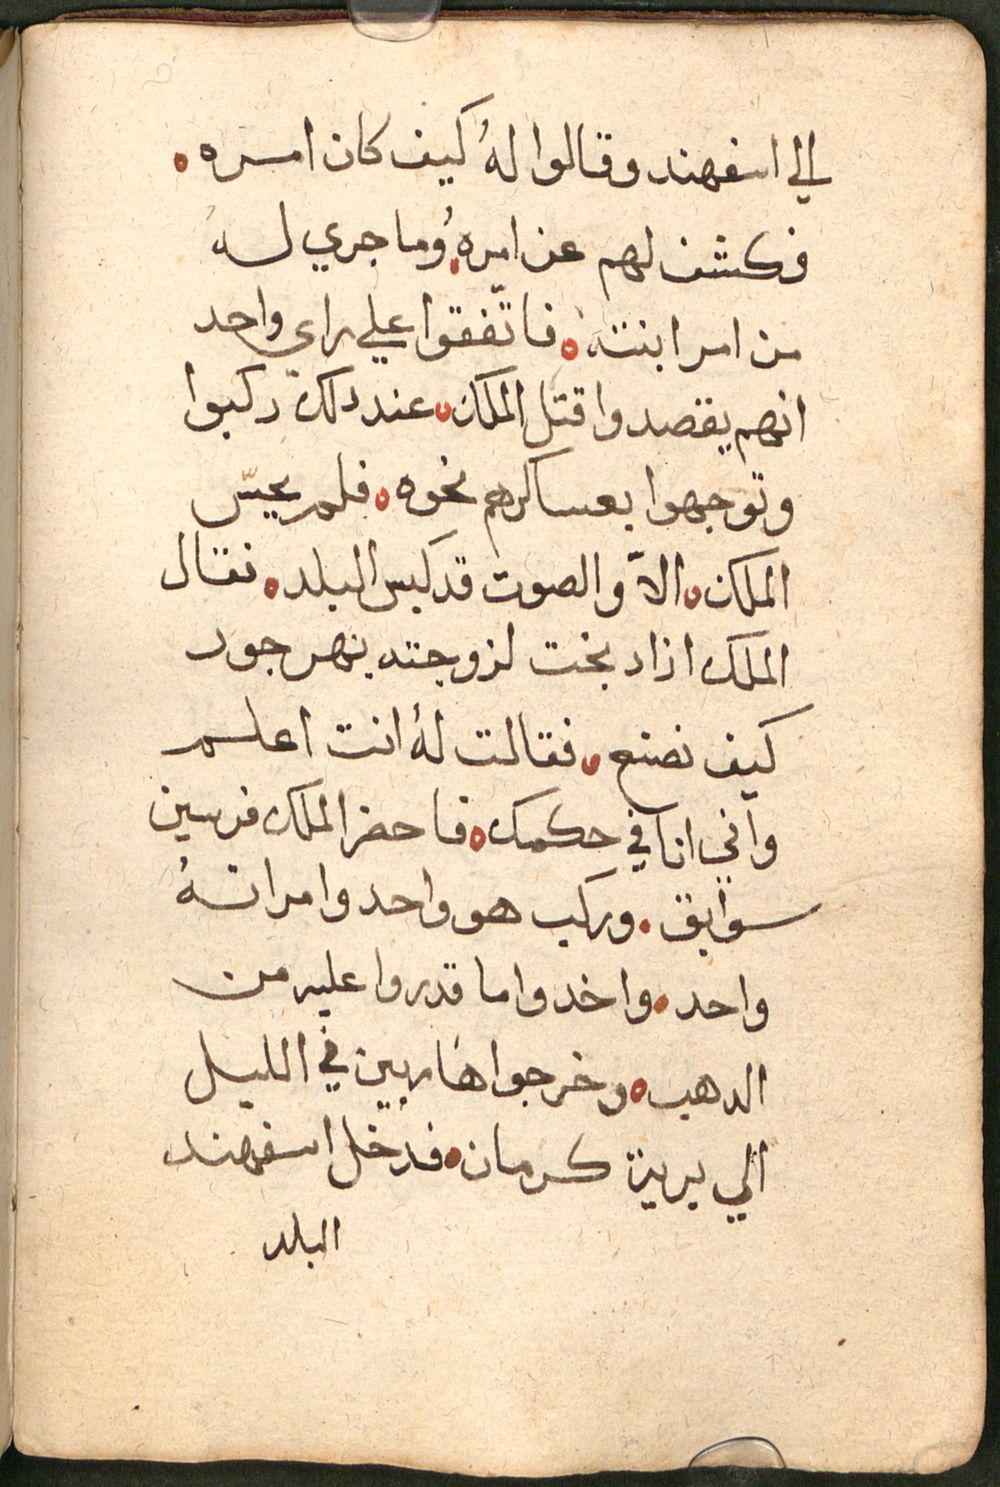 الي اسفهند وقالوا لهُ كيف كان امره
فكشف لهم عن امره وما جري لهُ
من امر ابنته فاتّفقوا علي راي واحد
انهم يقصدوا قتل الملك عند دلك ركبوا
وتوجهوا بعساكرهم نحوه فلم يحسّ
الملك الاّ والصوت قد كبس البلد فقال
الملك ازاد بخت لزوجته بنهرجور
كيف نصنع فقالت لهُ انت اعلم
واني انا في حكمك فاحضر الملك فرسين
سوابق وركب هو واحد وامراتهُ
واحد واخدوا ما قدروا عليه من
الدهب وخرجوا هاربين في الليل
الي بريّة كرمان فدخل اسفهند
البلد